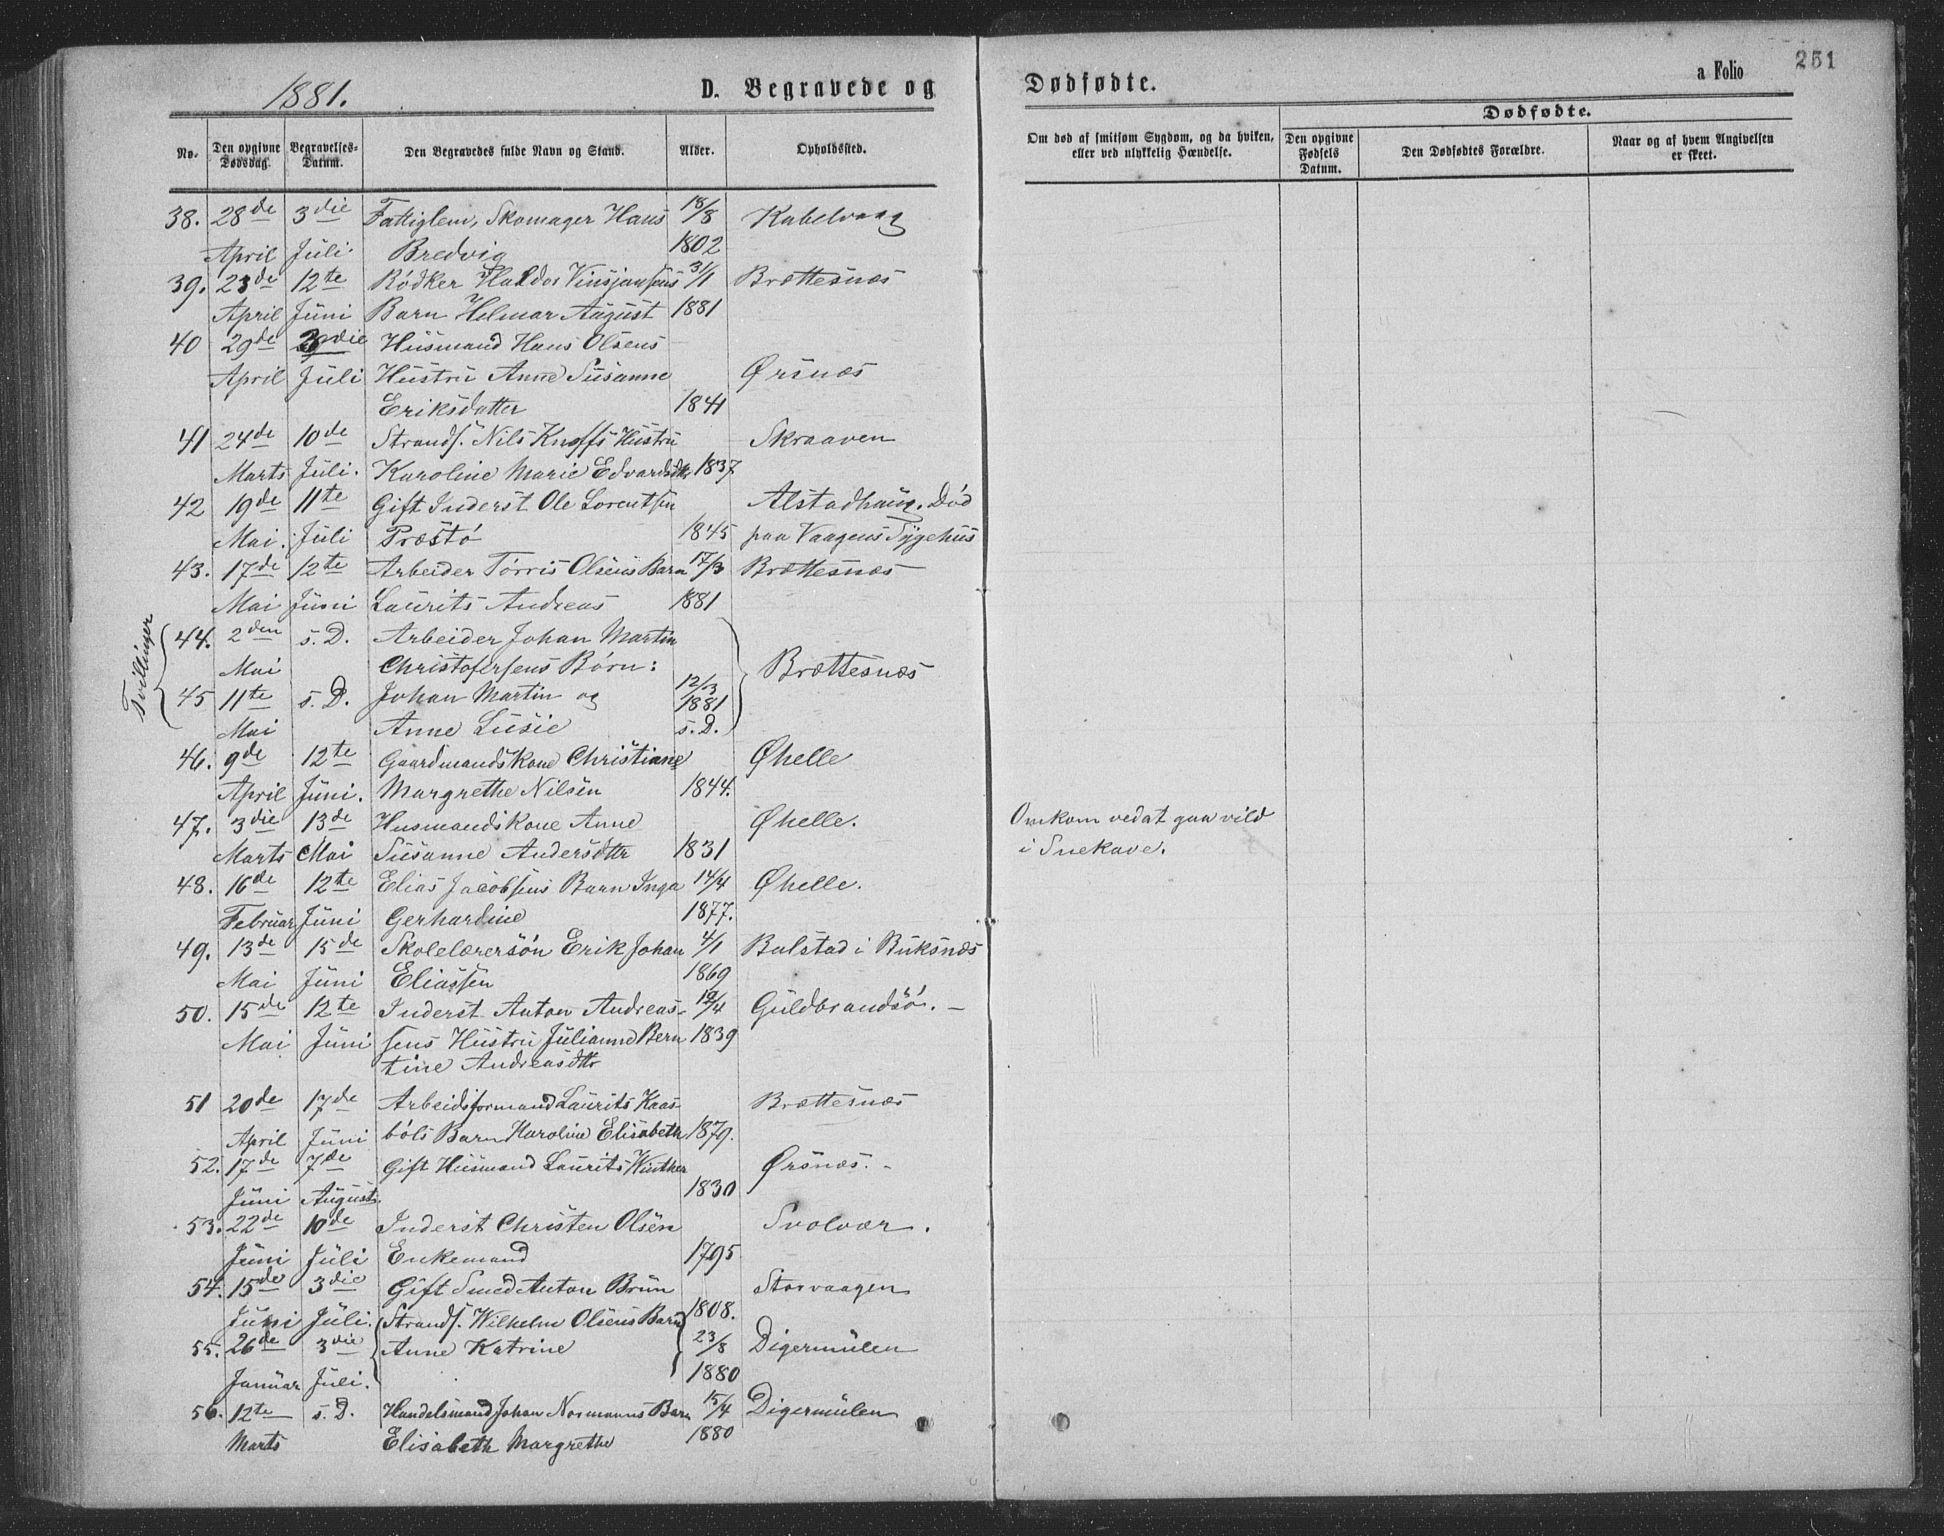 1881.
D. Begravede og
Dødfødte.
a Folio
251
No.
Den opgivne Dødsdag.
Begravelses-Datum.
Den Begravedes fulde Navn og Stand.
Alder.
Opholdssted.
Om død af smitsom Sygdom, og da hvilken, eller ved ulykkelig Hændelse.
Dødfødte.
Den opgivne Fødsels Datum.
Den Dødfødtes Forældre.
Naar og af hvem Angivelsen er skeet.
38. 28de 3die Fattiglem, Skomager Hans 18/8 Kabelvaag
April Juli Bredvig 1802
39. 23de 12te Rødker Haldor Vinsjansens 31/1 Brettesnæs
April Juni Barn Helmar August 1881
40 29de 3die Husmand Hans Olsens
April Juli Hustru Anne Susanne Ørsnæs
Eriksdatter 1841
41 24de 10de Strands. Nils Knoffs Hustru Skraaven
Marts Juli. Karoline Marie Edvardsdtr 1837
42 19de 11te Gift Inderst Ole Lorentsen Alstadhaug. Død
Mai. Juli Præstø 1845 paa Vaagens Sygehus
43. 17de 12te Arbeider Tørris Olsens Barn 17/3 Brettesnæs
Mai Juni Laurits Andreas 1881
Tvillinger
44. 2den s. D. Arbeider Johan Martin
Mai Christofersens Børn: Brettesnæs
45 11te s. D. Johan Martin og 12/3 1881
Mai Anne Lusie s. D.
46. 9de 12te Gaardmandskone Christiane Øhelle
April Juni. Margrethe Nilsen 1844.
47. 3die 13de Husmandskone Anne Øhelle. Omkom ved at gaa vild
Marts Mai Susanne Andersdtr 1831 i Snekave.
48. 16de 12te Elias Jacobsens Barn Inga 14/4 Øhelle.
Februar Juni Gerhardine 1877.
49. 13de 15de Skolelærersøn Erik Johan 4/1 Balstad i Buksnæs
Mai Juni Eliassen 1869
50. 15de 12te Inderst Anton Andreas- 19/4 Guldbrandsø. –
Mai Juni sens Hustru Julianne Bern 1839
tine Andreasdtr
51 20de 17de Arbeidsformand Laurits Kaas- Brettesnæs
April Juni bøls Barn Karoline Elisabeth 1879.
52. 17de 7de Gift Husmand Laurits Winther Ørsnæs. -
Juni August 1830
53. 22de 10de Inderst Christen Olsen Svolvær.
Juni Juli Enkemand 1795
54. 15de 3die Gift Smed Anton Brun Storvaagen
Juni Juli. 1808.
Strands. Wilhelm Olsens Barn
55. 26de 3die Anne Katrine 23/8 Digermulen
Januar Juli. 1880
56. 12te s. D. Handelsmand Johan Normanns Barn 15/4 Digermulen
Marts Elisabeth Margrethe 1880